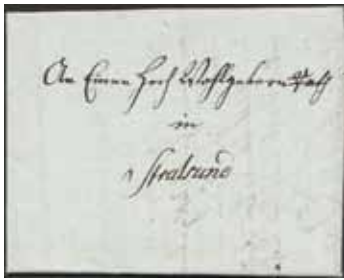 An Einen Hoch Wohlgebornen Rath
in
Stralsund